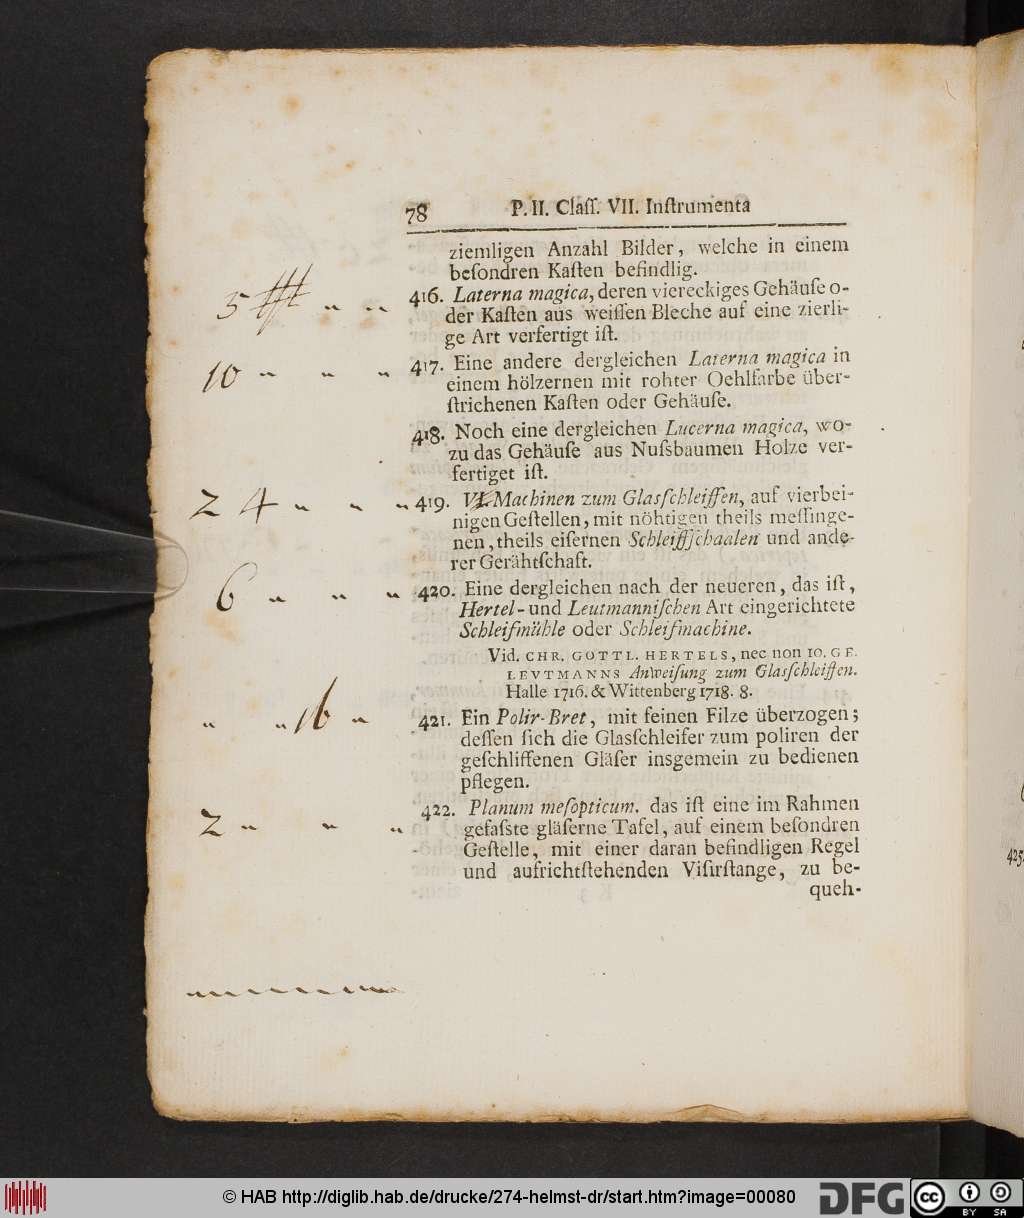 78 P. II. Claſſ. VII. Inſtrumenta
ziemligen Anzahl Bilder, welche in einem
beſondren Kaſten befindlig.
5 " " 416. Laterna magica, deren viereckiges Gehäuſe o-
der Kaſten aus weiſſen Bleche auf eine zierli-
ge Art verfertigt iſt.
10 " " " 417. Eine andere dergleichen Laterna magica in
einem hölzernen mit rohter Oehlfarbe über-
ſtrichenen Kaſten oder Gehäuſe.
418. Noch eine dergleichen Lucerna magica, wo-
zu das Gehäuſe aus Nuſsbaumen Holze ver-
fertiget iſt.
24 " " " 419. VI. Machinen zum Glasſchleiffen, auf vierbei-
nigen Geſtellen, mit nöhtigen theils meſſinge-
nen, theils eiſernen Schleiffſchaalen und ande-
rer Gerähtſchaft.
6 " " " 420. Eine dergleichen nach der neueren, das iſt,
Hertel- und Leutmanniſchen Art eingerichtete
Schleifmühle oder Schleifmachine.
Vid. CHR. GOTTL. HERTELS, nec non IO. GE.
LEVTMANNS Anweiſung zum Glasſchleiffen.
Halle 1716. & Wittenberg 1718. 8.
" " 16 " 421. Ein Polir-Bret, mit feinen Filze überzogen;
deſſen ſich die Glasſchleifer zum poliren der
geſchliffenen Gläſer insgemein zu bedienen
pflegen.
2 " " " 422. Planum meſopticum. das iſt eine im Rahmen
gefaſste gläſerne Tafel, auf einem beſondren
Geſtelle, mit einer daran befindligen Regel
und aufrichtſtehenden Viſirſtange, zu be-
queh-
425.
© HAB http://diglib.hab.de/drucke/274-helmst-dr/start.htm?image=00080
DFG
cc BY SA